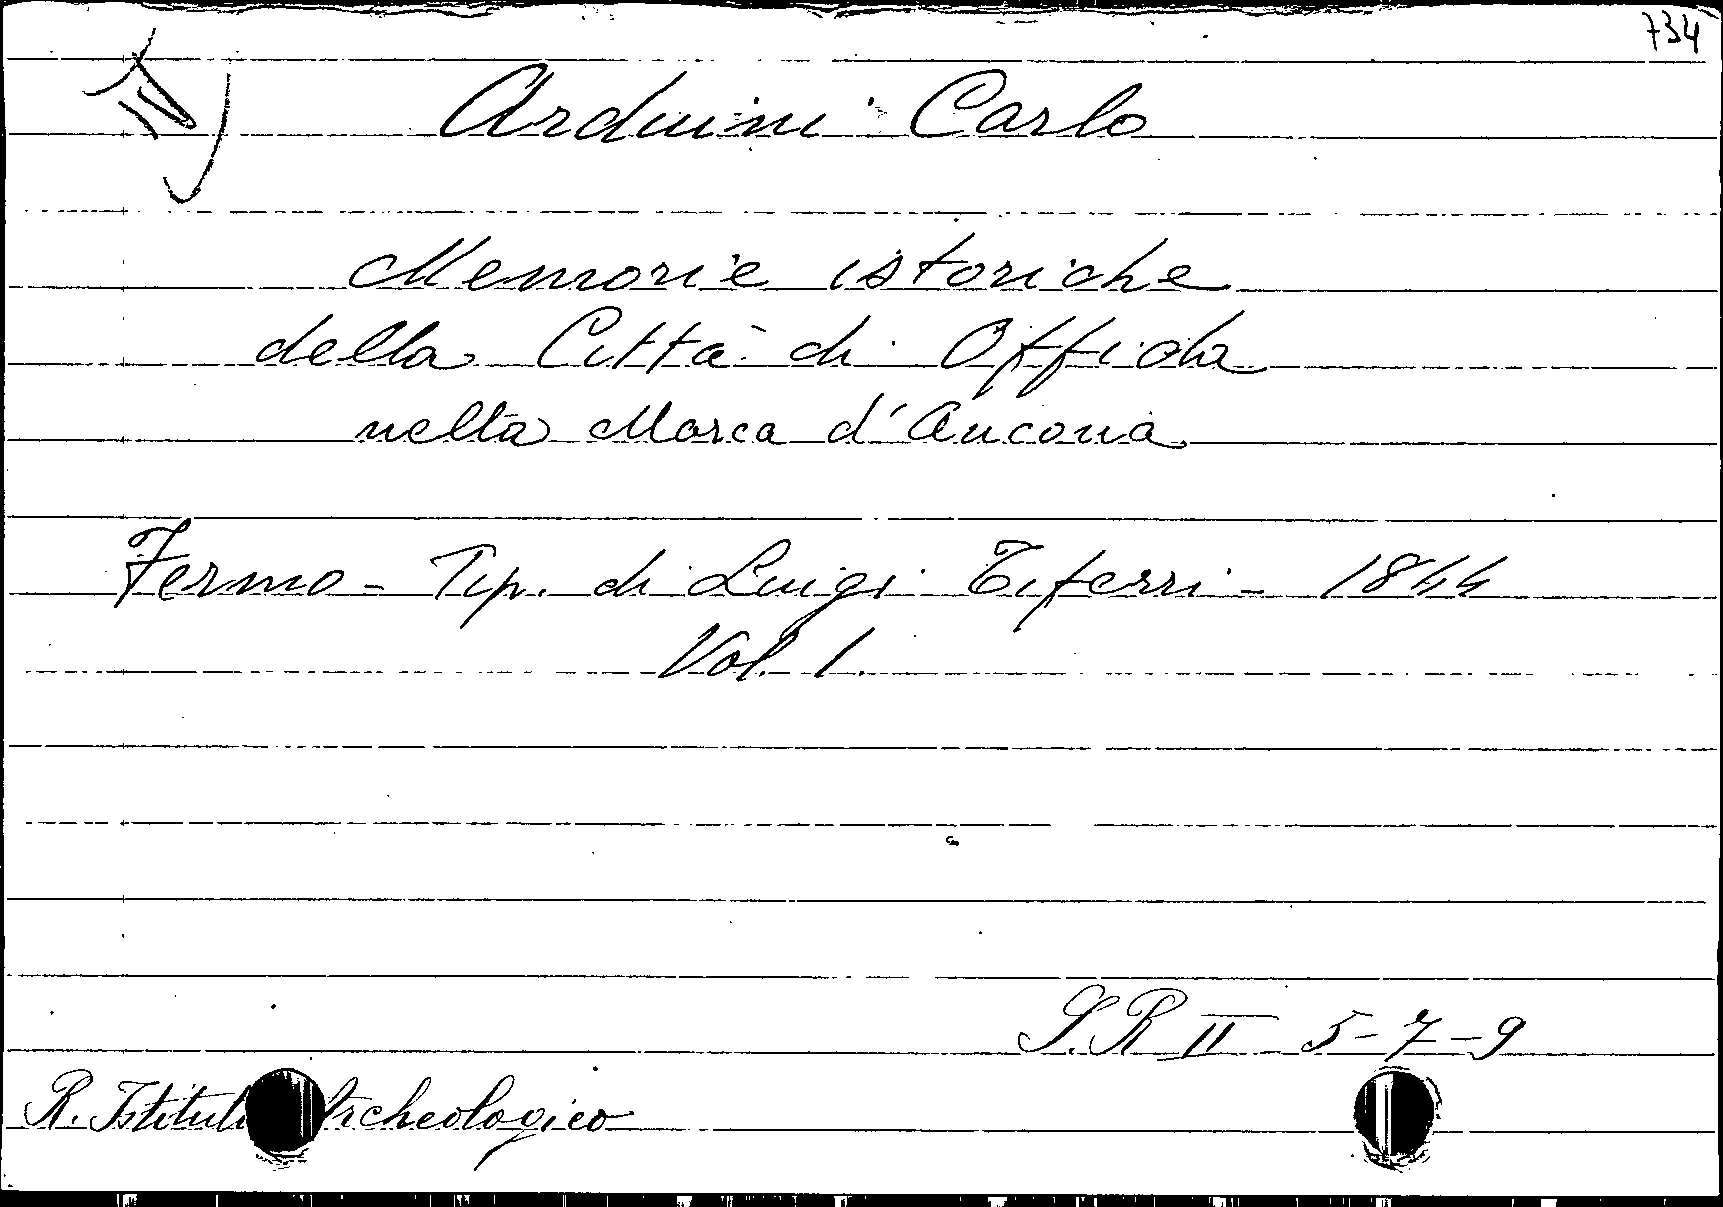 734
Arduini Carlo
Memorie istoriche
della Città di Offida
nella Marca d'Ancona
Fermo - Tip. di Luigi Tiferri - 1844
Vol. 1.
S.R II 5-7-9
R. Istituto Archeologico